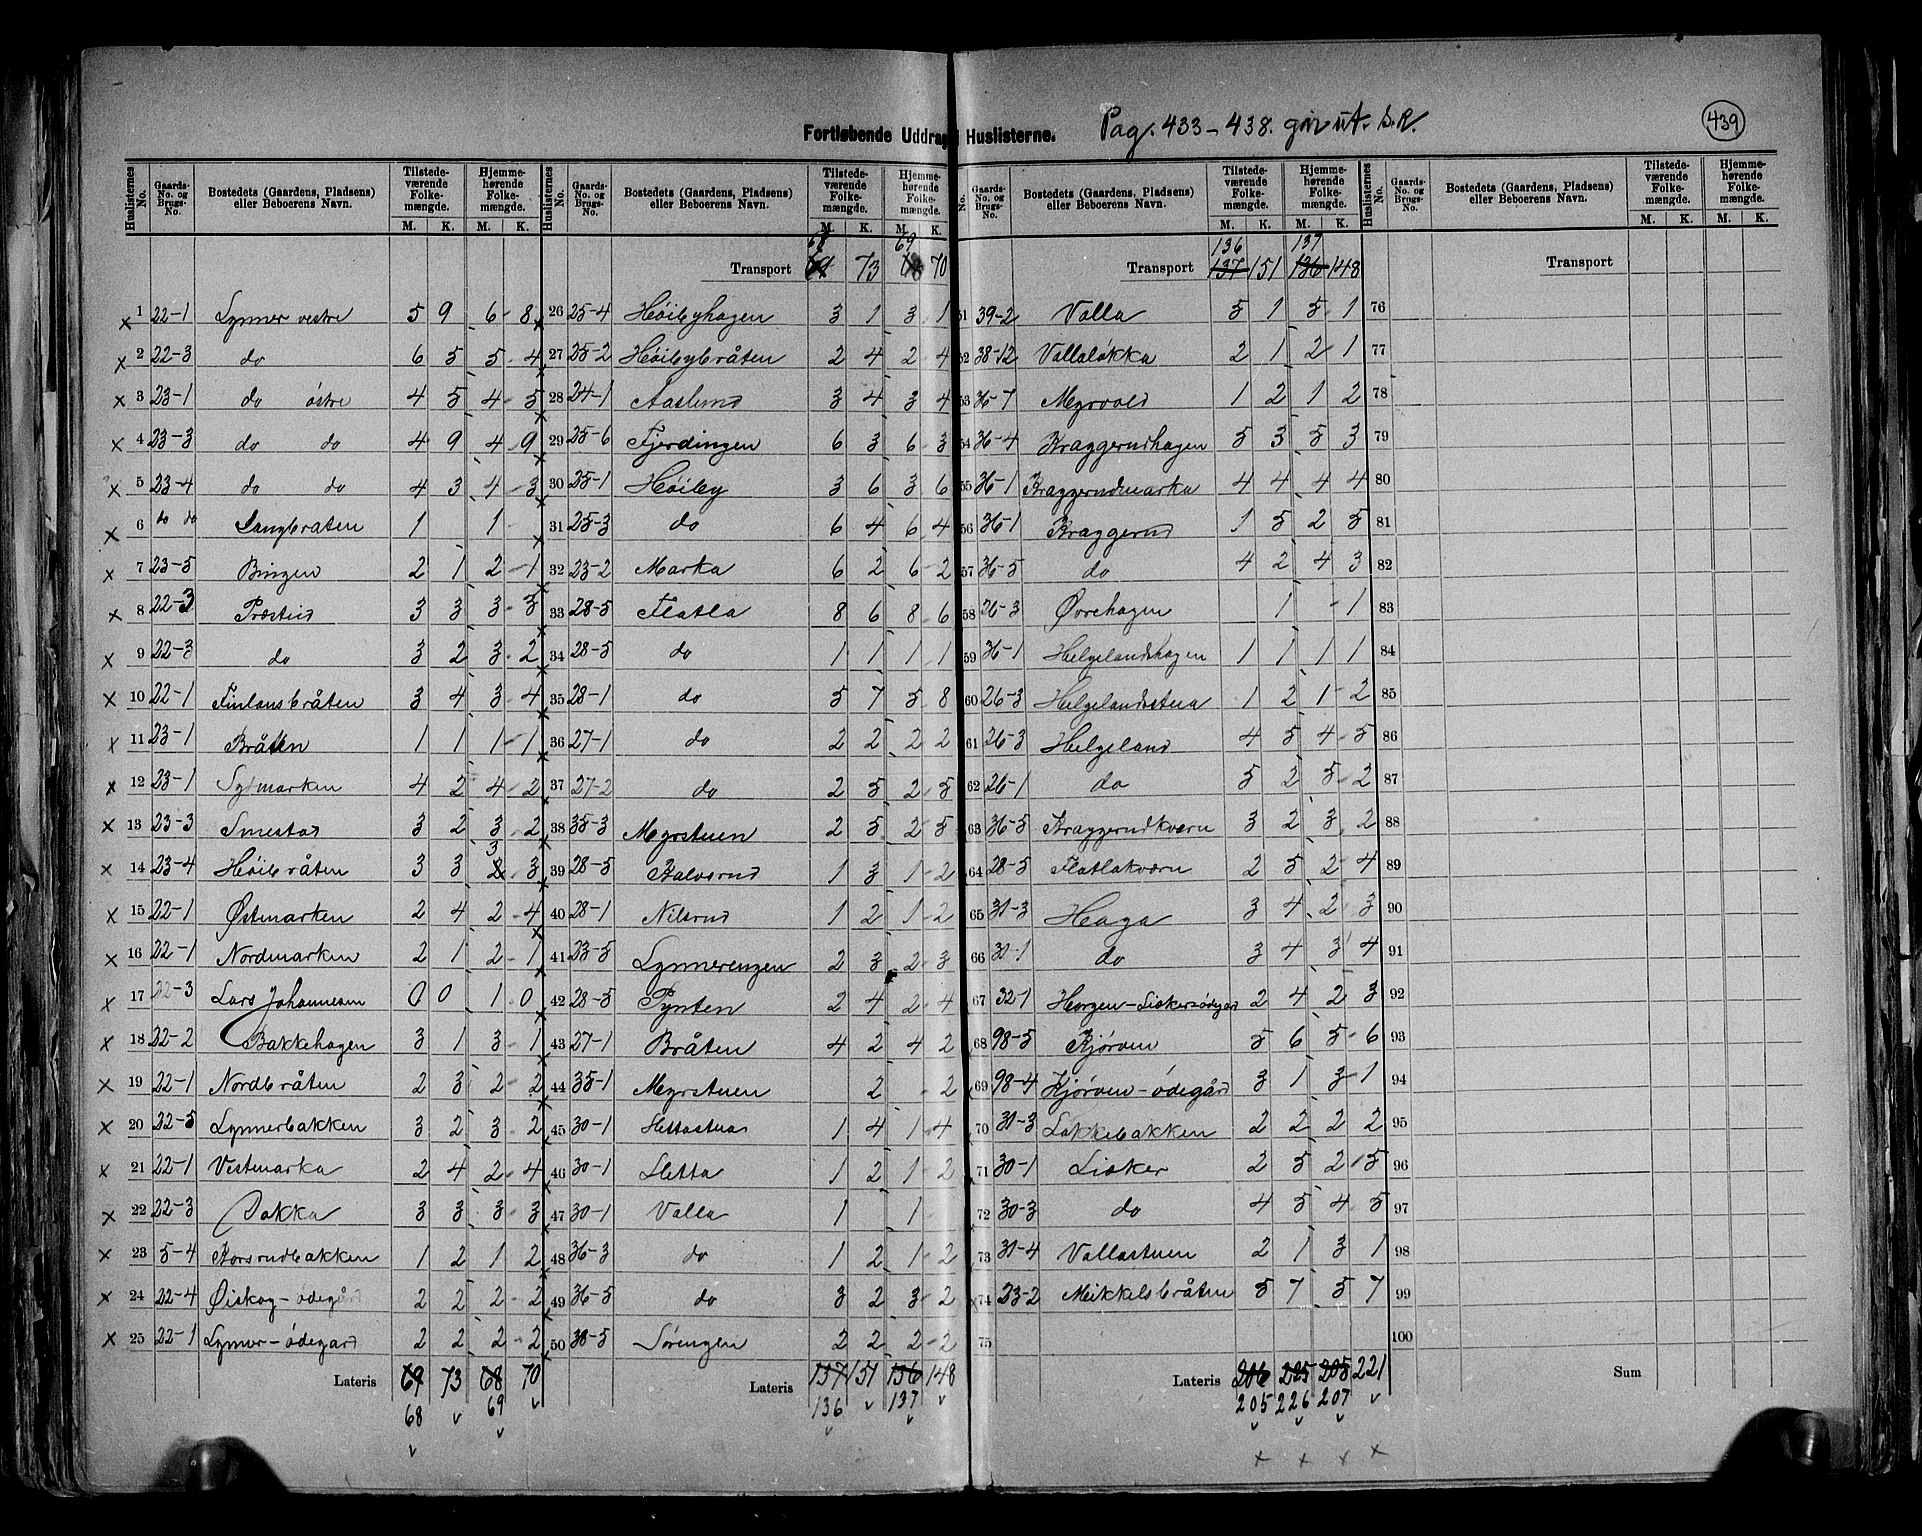 Fortløbende Uddrag i Huslisterne. Pag. 433–438. går ut. S.R. 439
Huslisternes No. | Gaards-No. og Brugs-No. | Bostedets (Gaardens, Pladsens) eller Beboerens Navn. | Tilstedeværende Folkemængde. M. K. | Hjemmehørende Folkemængde. M. K.
1 22-1 Lynner vestre 5 9 6 8
2 22-3 do 6 5 5 4
3 23-1 do östre 4 5 4 5
4 23-3 do do 4 9 4 9
5 23-4 do do 4 3 4 3
6 do do Langbraten 1 1
7 23-5 Bingen 2 1 2 1
8 22-3 Præstud 3 3 3 3
9 22-3 do 3 2 3 2
10 22-1 Finlansbråten 3 4 3 4
11 23-1 Bråten 1 1 1 1
12 23-1 Sydmarken 4 2 4 2
13 23-3 Smestad 3 2 3 2
14 23-4 Høibråten 3 3 3 3
15 22-1 Østmarken 2 4 2 4
16 22-1 Nordmarken 2 1 2 1
17 22-3 Lars Johannesen 0 0 1 0
18 22-2 Bakkehagen 3 1 3 1
19 22-1 Nordbråten 2 3 2 2
20 22-5 Lynnerbakken 3 2 3 2
21 22-1 Vestmarka 2 4 2 4
22 22-3 Dokka 3 3 3 3
23 5-4 Korsrudbakken 1 2 1 2
24 22-4 Øiskog-ödegård 2 2 2 2
25 22-1 Lynner-ödegard 2 2 2 2
Lateris 69 73 68 70
68 69
68 69
Transport 69 73 68 70
26 25-4 Høibyhagen 3 1 3 1
27 25-2 Høibybråten 2 4 2 4
28 24-1 Aaslund 3 4 3 4
29 25-6 Fjerdingen 6 3 6 3
30 25-1 Høiby 3 6 3 6
31 25-3 do 6 4 6 4
32 23-2 Marka 6 2 6 2
33 28-5 Flatla 8 6 8 6
34 28-5 do 1 1 1 1
35 28-1 do 5 7 5 8
36 27-1 do 2 2 2 2
37 27-2 do 2 5 2 5
38 35-3 Myrstuen 2 5 2 5
39 28-5 Kalvsrud 1 3 1 2
40 28-1 Nilsrud 1 2 1 2
41 23-5 Lynnerengen 2 3 2 3
42 28-5 Pynten 2 4 2 4
43 27-1 Bråten 4 2 4 2
44 35-1 Myrstuen 2 2
45 30-1 Slettastua 1 4 1 4
46 30-1 Sletta 1 2 1 2
47 30-1 Valla 1 1
48 36-3 do 1 2 1 2
49 36-5 do 3 2 3 2
50 38-5 Sørengen 2 2 2 2
Lateris 137 151 136 148
136 137
136 137
Transport 137 151 136 148
51 39-2 Valla 5 1 5 1
52 38-12 Vallaløkka 2 1 2 1
53 36-7 Myrvold 1 2 1 2
54 36-4 Kraggerudhagen 5 3 5 3
55 36-1 Kraggerudmarka 4 4 4 4
56 36-1 Kraggerud 1 5 2 5
57 36-5 do 4 2 4 3
58 26-3 Øvrehagen 1 1
59 36-1 Helgelandshagen 1 1 1 1
60 26-3 Helgelandsstua 1 2 1 2
61 26-3 Helgeland 4 5 4 5
62 26-1 do 5 2 5 2
63 36-5 Kraggerudkværn 3 2 3 2
64 28-5 Flatlakværn 2 5 2 4
65 31-3 Haga 3 4 2 3
66 31-1 do 3 4 3 4
67 32-1 Horgen-Liökersödegard 2 4 2 3
68 98-5 Kjørven 5 6 5 6
69 98-4 Kjørven-ödegård 3 1 3 1
70 31-3 Løkkebakken 2 2 2 2
71 30-1 Liøker 2 5 2 5
72 30-3 do 4 5 4 5
73 31-4 Vallastuen 2 1 3 1
74 23-2 Mikkelsbråten 5 7 5 7
75
Lateris 206 225 205 221
205 226 207
Transport
76
77
78
79
80
81
82
83
84
85
86
87
88
89
90
91
92
93
94
95
96
97
98
99
100
Sum